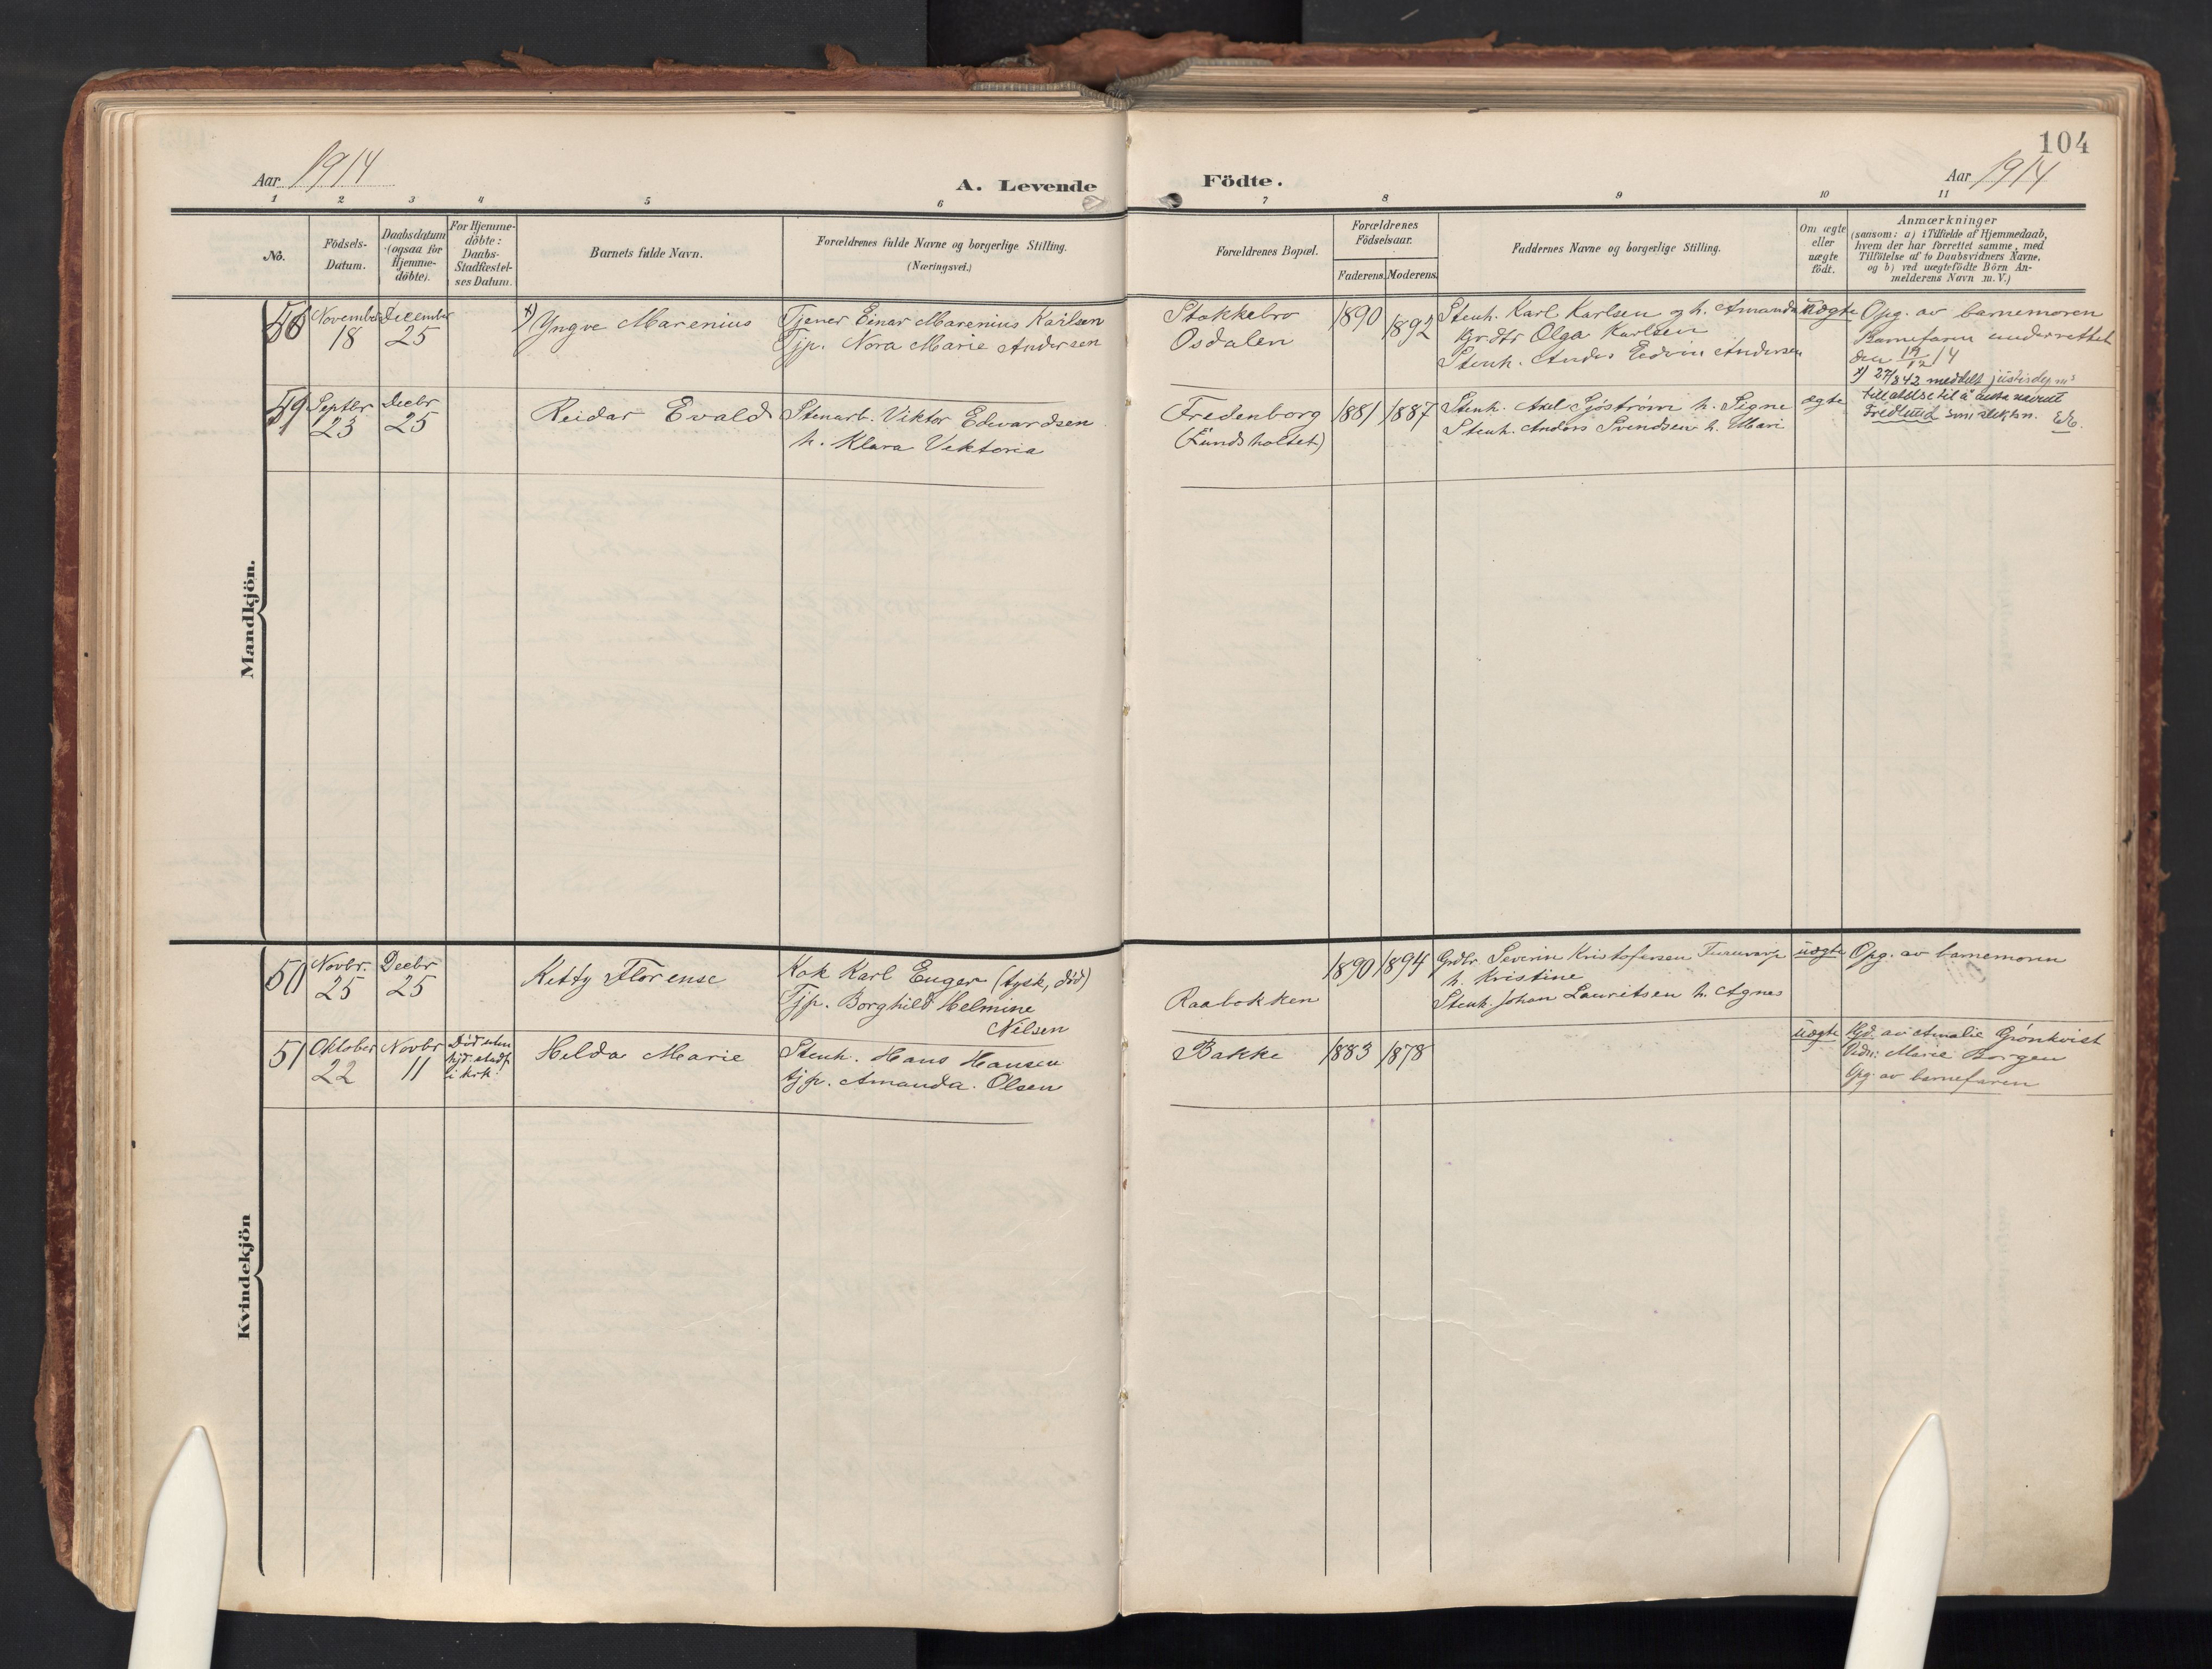 104
Aar 1914
A. Levende Födte.
Aar 1914
1 2 3 4 5 6 7 8 9 10 11
No.
Födsels-
Datum.
Daabsdatum
(ogsaa for
Hjemme-
döbte).
For Hjemme-
döbte:
Daabs-
Stadfæstel-
ses Datum.
Barnets fulde Navn.
Forældrenes fulde Navne og borgerlige Stilling.
(Næringsvei.)
Forældrenes Bopæl.
Forældrenes
Födselsaar.
Faderens.
Moderens.
Faddernes Navne og borgerlige Stilling.
Om ægte
eller
uægte
födt.
Anmærkninger
(saasom: a) i Tilfælde af Hjemmedaab,
hvem der har forrettet samme, med
Tilföielse af to Daabsvidners Navne,
og b) ved uægtefödte Börn An-
melderens Navn m. V.)
Mandkjön.
November
18
December
25
x) Yngve Marenius
Tjener Einar Marenius Karlsen
Tjp. Nora Marie Andersen
Stokkebro
Osdalen
1890
1892
Stenh. Karl Karlsen og h. Amanda
Grdtr Olga Karlsen
Stenh. Anders Edvin Andersen
uægte
Opg. av barnemoren
Barnefaren underrettet
den 19/12 14
x) 27/8 42 meddelt justisdep.ms
tillatelse til å anta navnet
Fredlund som slektsn.
49
Septbr
23
Decbr
25
Reidar Evald
Stenarb. Viktor Edvardsen
h. Klara Viktoria
Fredenborg
(Lundsholtet)
1881
1887
Stenh. Axel Sjöström h. Signe
Stenh. Anders Svendsen h. Mari
ægte
Kvindekjön
50
Novbr.
25
Decbr
25
Kitty Florense
Kok Karl Euger (tysk, död)
Tjp. Borghild Helmine
Nilsen
Raabokken
1890
1894
Grdbr. Severin Kristofersen
h. Kristine
Stenh. Johan Lauritsen h. Agnes
uægte
Opg. av barnemoren
51
Oktober
22
Novbr
11
Död uten
i kirk.
Helda Marie
Stenh. Hans Hansen
tjp. Amanda Olsen
Bakke
1883
1878
uægte
Hjd. av Amalie Grönkvist
Vidn: Marie Borgen
Opg. av barnefaren